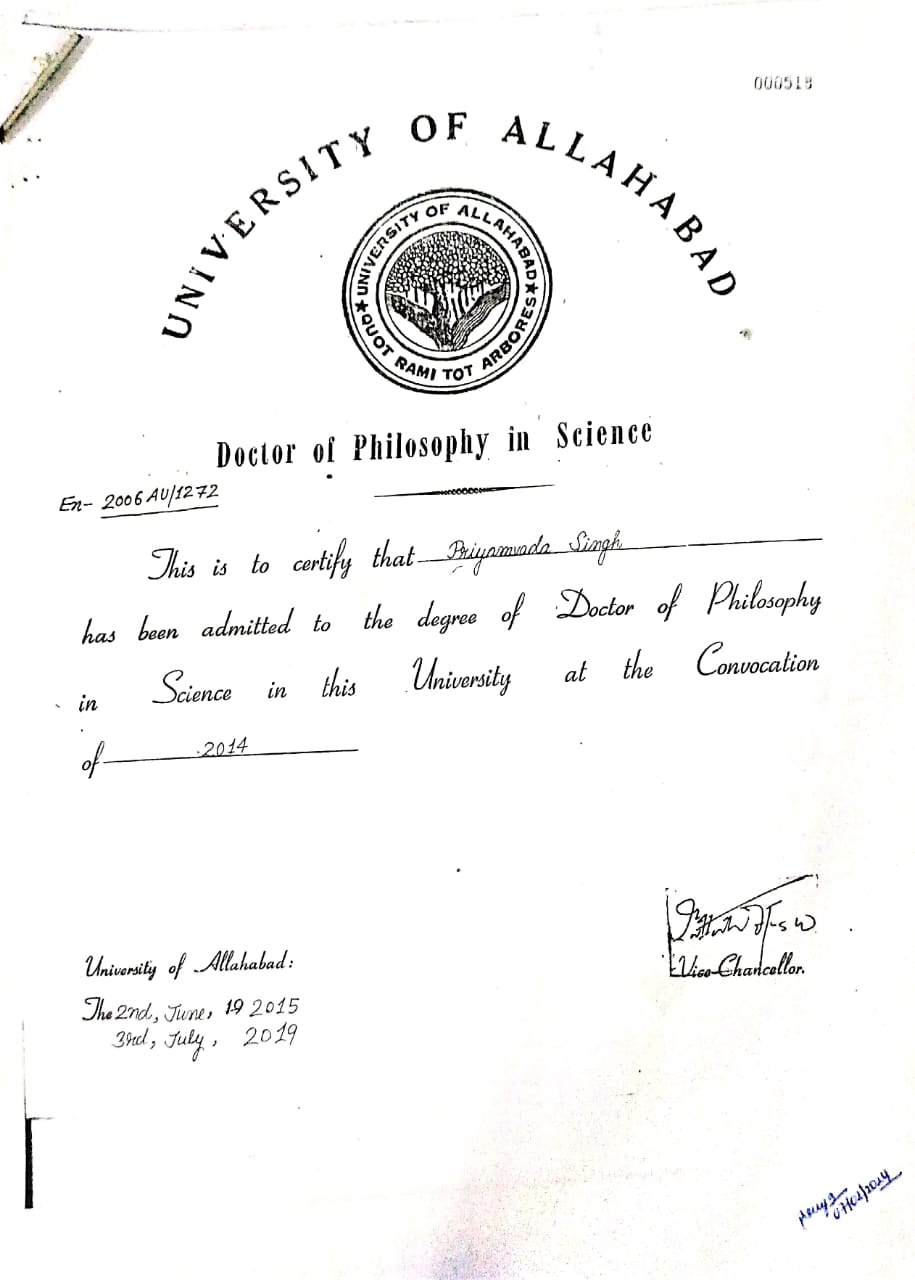 000518
UNIVERSITY OF ALLAHABAD
UNIVERSITY OF ALLAHABAD
QUOT RAMI TOT ARBORES
Doctor of Philosophy in Science
En- 2006 AU/1272
This is to certify that Priyamvada Singh
has been admitted to the degree of Doctor of Philosophy
in Science in this University at the Convocation
of 2014
Vice-Chancellor.
University of Allahabad:
The 2nd, June, 19 2015
3rd, July, 2019